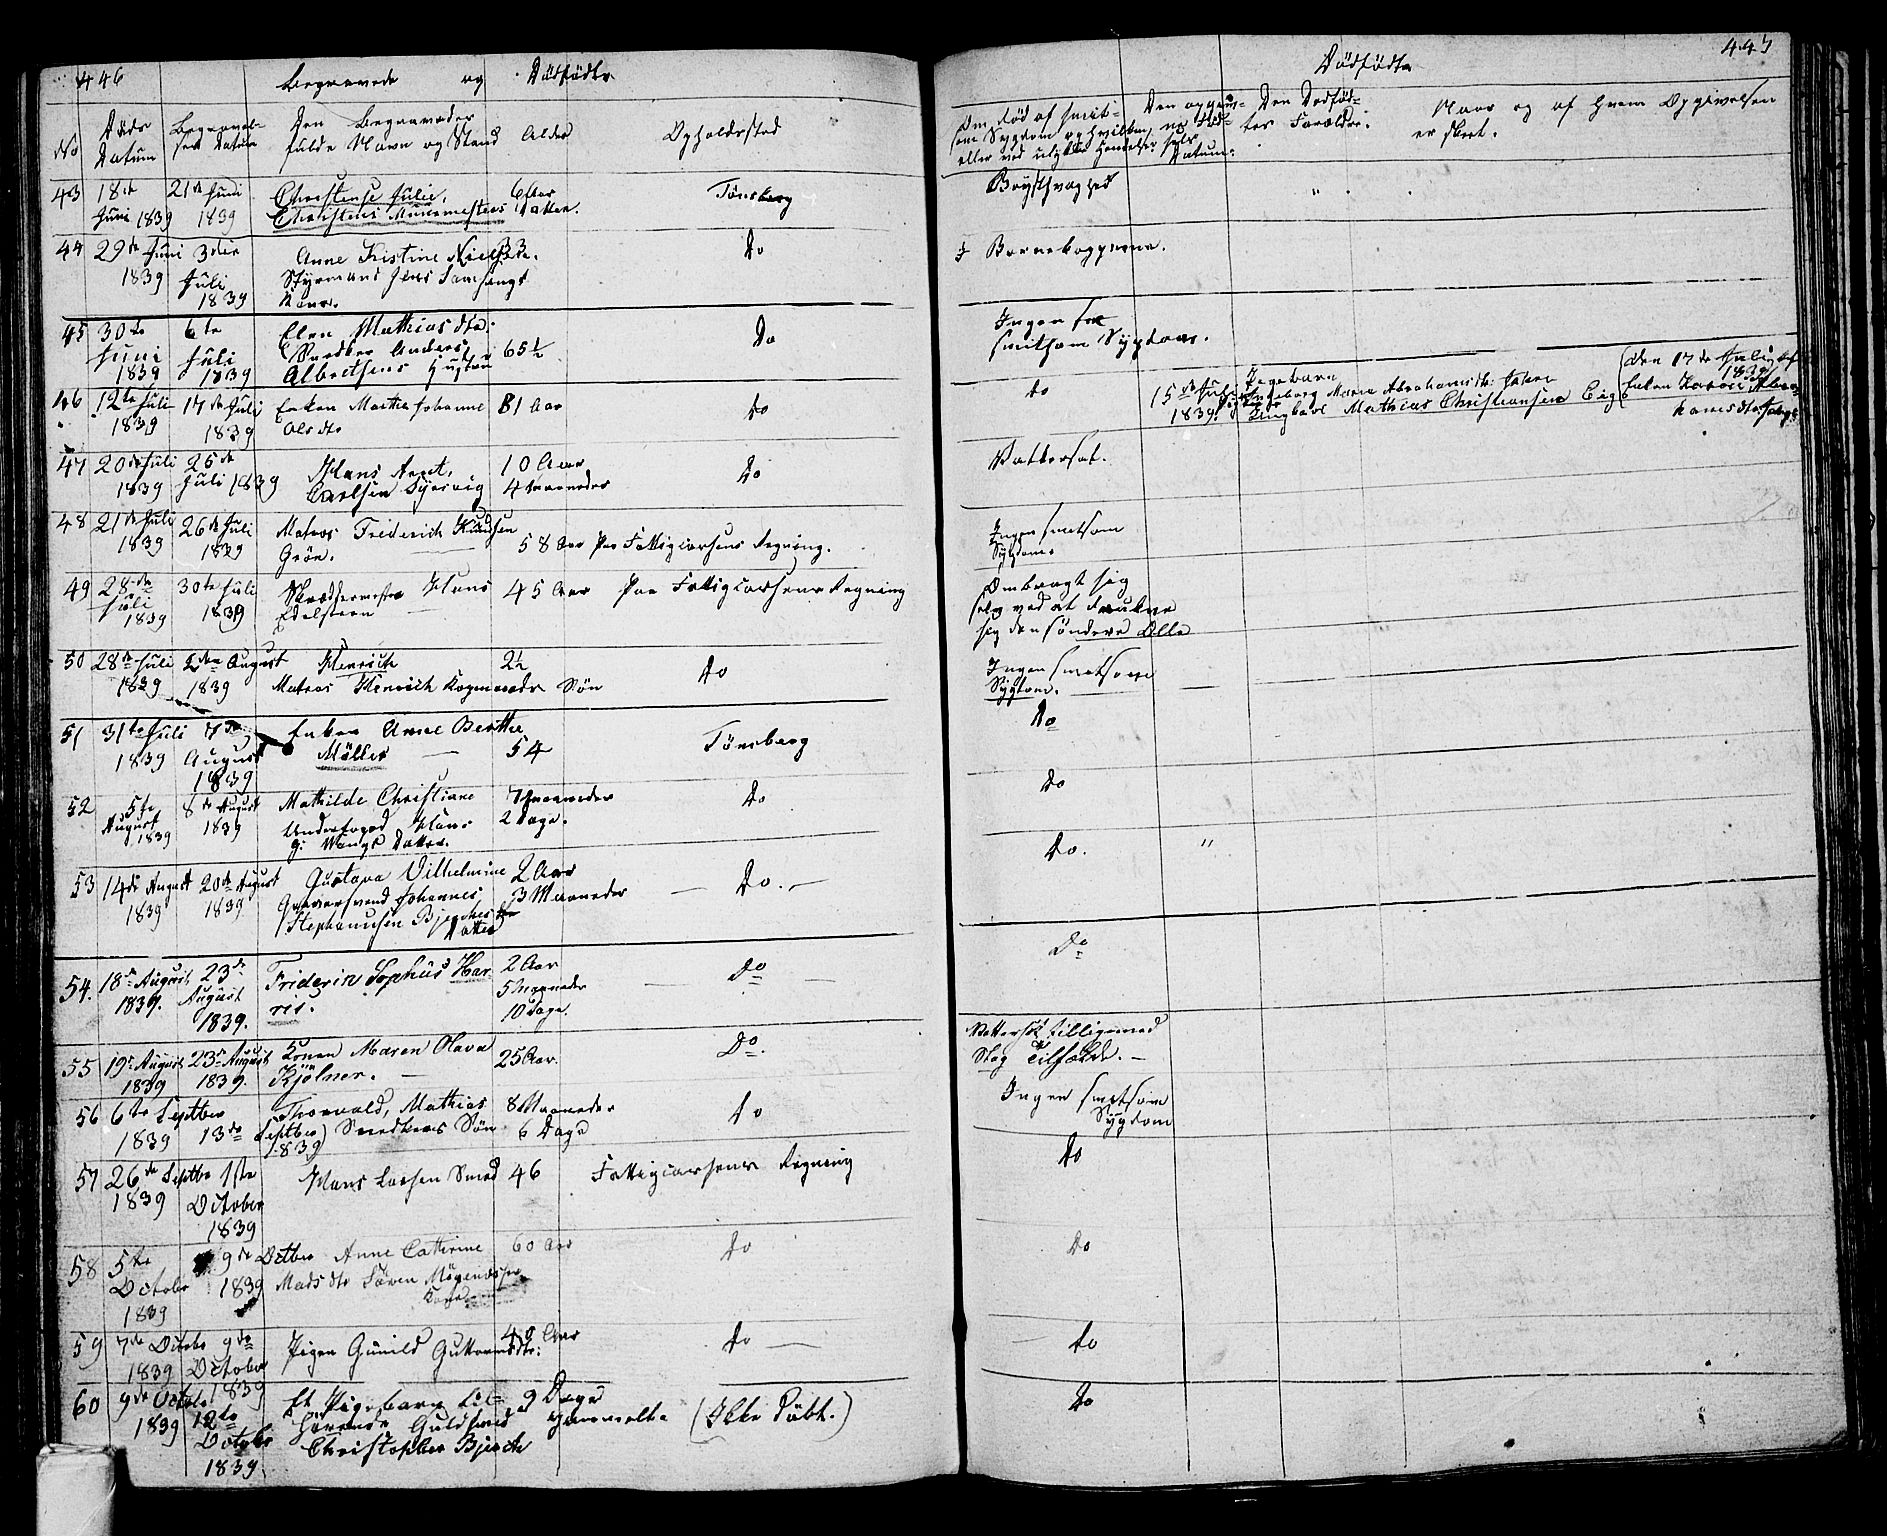 446
Begravede og Dødfødte
No
Døds Datum
Begravelsens Datum
Den Begravedes fulde Navn og Stand
Alder
Opholdssted
43 18de Juni 1839 21de Juni 1839 Christense Julie, Christens Muurmesters Datter. 6 Aar Tønsberg
44 29de Juni 1839 3die Juli 1839 Anne Kistine Nielsdtr. Styrmand Jens Kone. 33 Do
45 30te Juni 1839 6te Juli 1839 Elen Mathias dtr. Snedker Anders Albertsens Hustru 65½ Do
46 12te Juli 1839 17de Juli 1839 Enken Marthe Johanne Olsdtr 81 Aar Do
47 20de Juli 1839 25de Juli 1839 Hans Arnt, Carlsen 10 Aar 4 Maaneder Do
48 21de Juli 1839 26de Juli 1839 Matros Friderich Knudsen Grön. 58 Aar Paa Fattigcassens Regning.
49 28de Juli 1839 30te Juli 1839 Skrædermester Hans Edelsteen 45 Aar Paa Fattigcassens Regning
50 28de Juli 1839 2den August 1839 Henrich Matros Henrich Søn 2½ Do
51 31te Juli 1839 7de August 1839 Enken Anne Berthe Möller 54 Tønsberg
52 5te August 1839 8de August 1839 Mathilde Christiane Underfoged Hans G: Wangs Datter. 7 Maaneder 2 Dage. Do
53 14de August 1839 20de August 1839 Gustava Vilhelmine Garversvend Johannes Stephanusen Bjerches Datter 2 Aar 3 Maaneder — Do. —
54. 18de August 1839. 23de August 1839. Friderik Sophüs Harris. 2 Aar 5 Maaneder 10 Dage. — Do —
55 19de August 1839 23de August 1839. Konen Maren Olava Kjölner. — 25 Aar. Do.
56 6te Septber 1839 13de Septber 1839 Thorvald, Mathias Snedkers Søn 8 Maaneder 6 Dage Do
57 26de Septbr 1839 1ste October 1839 Hans Larsen Smed 46 Fattigcassens Regning
58 5te Octobr 1839 9de Octbr 1839 Anne Cathrine Mads dtr Sören Kone 60 Aar Do
59 7de Octobr 1839 9de October 1839 Pigen Gunild Guttormsdtr: Aar Do —
60 9de Octobr 1839 12te Octobr 1839 Et Pigebarn tilhørende Guldsmed Christopher Bjerch 9 Dage gammelt (Ikke Döbt.)
447
Dødfødte
Om Død af smitsom Sygdom og hvilken, eller ved ulykkelig Hændelse
Datum
Den Dødfødtes Forældre.
Naar og af hvem Opgivelsen er skeet.
Brystsvaghed "
I Barnekoppene.
Ingen smitsom Sygdom.
do 15de Juli 1839. Pigebarn Ingeborg Maria Abrahamsdtr: Ungkarl Mathias Christiansen (den 17de Juli 1839 af Enken Karen
Vattersot.
Ingen smitsom Sygdom.
Ombragt sig selv ved at drukne sig
Ingen smitsom Sygdom.
Do
Do
Do. "
Do
Vattersot tilligemed Slag Tilfælde. —
Ingen smitsom Sygdom
Do
Do
do
Do